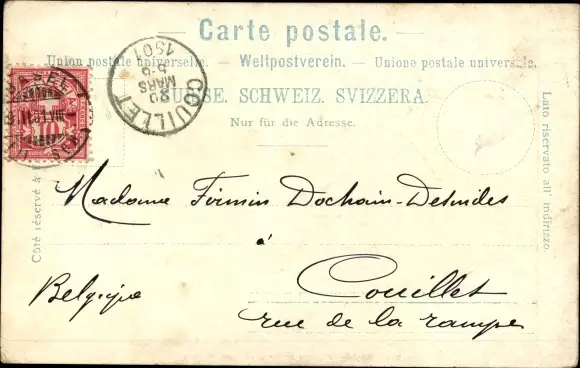 Carte postale.
Union postale universelle. — Weltpostverein. — Unione postale universale.
SUISSE. SCHWEIZ. SVIZZERA.
Nur für die Adresse.
COUILLET
20
MARS
5-6
1901
BASEL
10
Côté réservé à
Lato riservato all' indirizzo.
Madame Firmin Dochain-Desmides
à
Couillet
Belgique
rue de la rampe